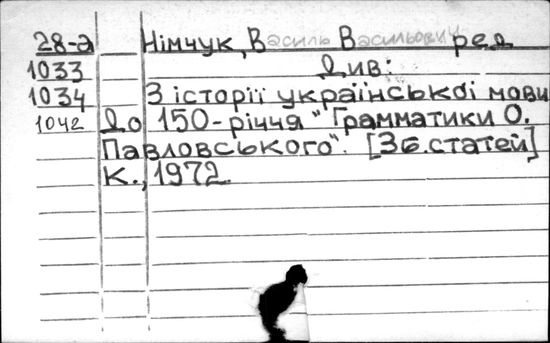 28-а Німчук, Василь Васильович ред
1033 Див:
1034 З історії української мови
1042 До 150-річчя "Грамматики О.
Павловського". [Зб.статей]
К., 1972.